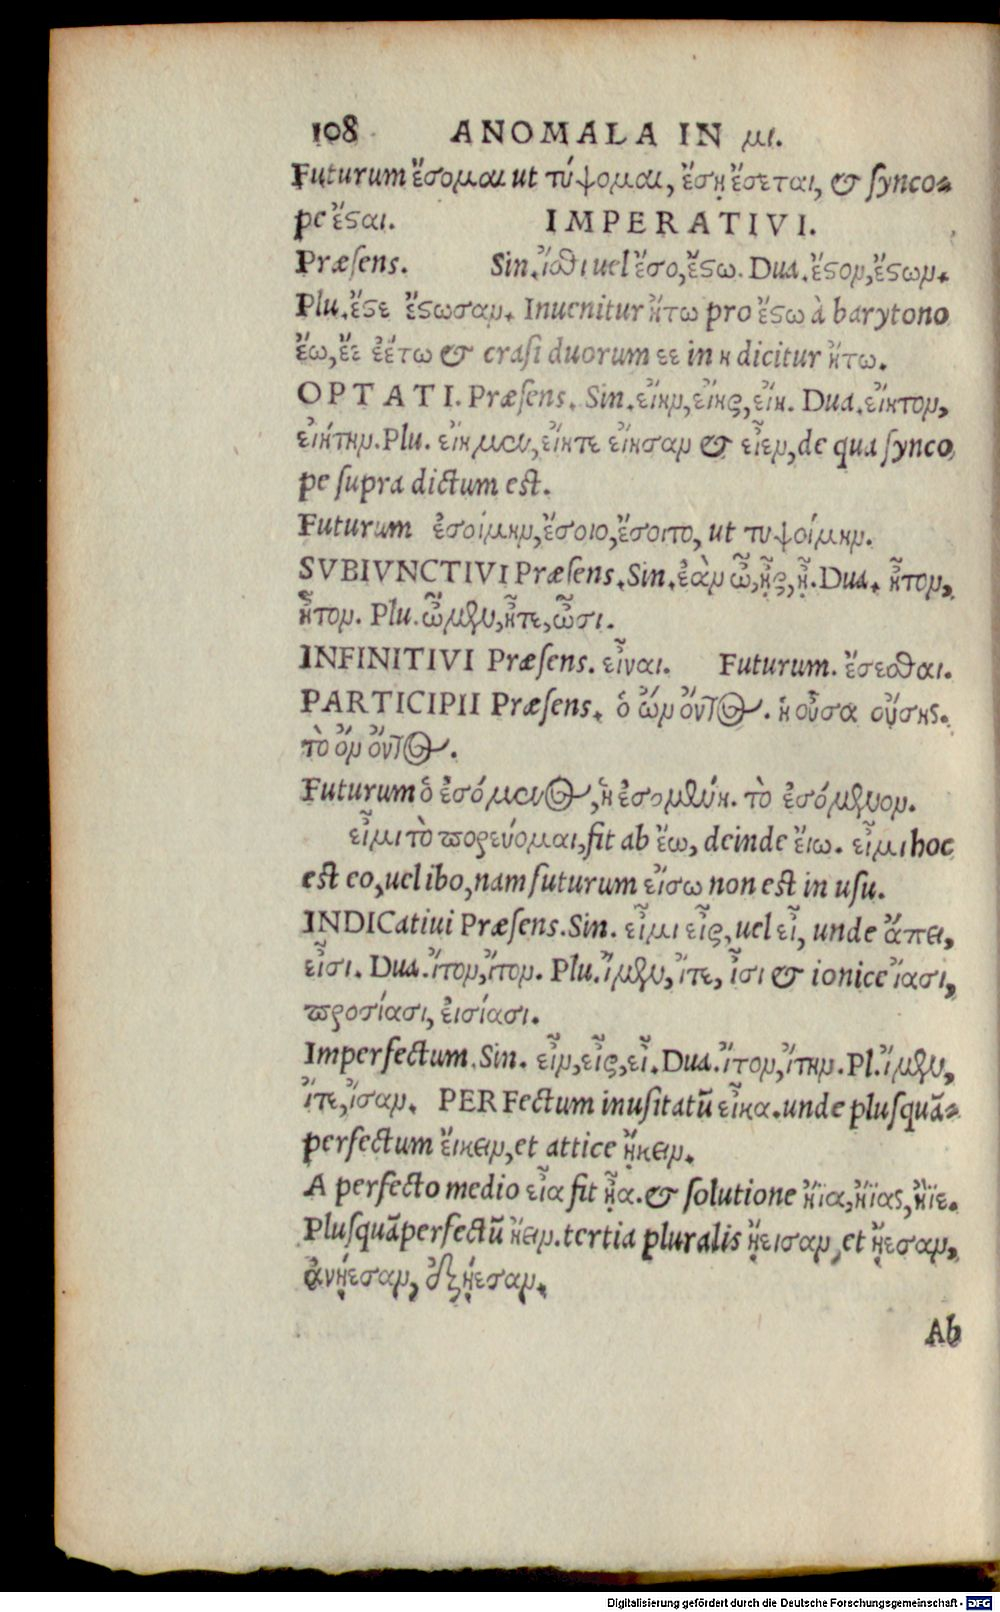 108 ANOMALA IN μι.
Futurum ἔσομαι ut τύψομαι, ἔσῃ ἔσεται, & ſynco=
pe ἔϛαι. IMPERATIVI.
Præſens. Sin. ἴσθι uel ἔσο, ἔϛω. Dua. ἔϛον, ἔϛων.
Plu. ἔϛε ἔϛωσαν. Inuenitur ἤτω pro ἔϛω à barytono
ἔω, ἔε ἐέτω & craſi duorum εε in η dicitur ἤτω.
OPTATI. Præſens. Sin. εἴην, εἴης, εἴη. Dua. εἴητον,
εἰήτην. Plu. εἴημεν, εἴητε εἴησαν & εἶεν, de qua ſynco
pe ſupra dictum est.
Futurum ἐσοίμην, ἔσοιο, ἔσοιτο, ut τυψοίμην.
SVBIVNCTIVI Præſens. Sin. ἐὰν ὦ, ᾖς, ᾖ. Dua. ἦτον,
ἦτον. Plu. ὦμεν, ἦτε, ὦσι.
INFINITIVI Præſens. εἶναι. Futurum. ἔσεσθαι.
PARTICIPII Præſens. ὁ ὢν ὄντος. ἡ οὖσα οὔσης.
τὸ ὂν ὄντος.
Futurum ὁ ἐσόμενος, ἡ ἐσομένη. τὸ ἐσόμενον.
εἶμι τὸ πορεύομαι, fit ab ἔω, deinde ἔιω. εἶμι hoc
est eo, uel ibo, nam futurum εἴσω non est in uſu.
INDICatiui Præſens. Sin. εἶμι εἶς, uel εἶ, unde ἄπει,
εἶσι. Dua. ἴτον, ἴτον. Plu. ἴμεν, ἴτε, ἶσι & ionice ἴασι,
προσίασι, ἐισίασι.
Imperfectum. Sin. εἶν, εἶς, εἶ. Dua. ἴτον, ἴτην. Pl. ἴμεν,
ἴτε, ἴσαν. PERFectum inuſitatũ εἶκα. unde pluſquã=
perfectum ἔικειν, et attice ᾔκειν.
A perfecto medio εἶα fit ᾖα. & ſolutione ἤϊα, ἤϊας, ἤϊε.
Pluſquãperfectũ ἤειν. tertia pluralis ᾔεισαν, et ᾔεσαν,
ἀνῄεσαν, ἐξῄεσαν.
Ab
Digitalisierung gefördert durch die Deutsche Forschungsgemeinschaft - DFG